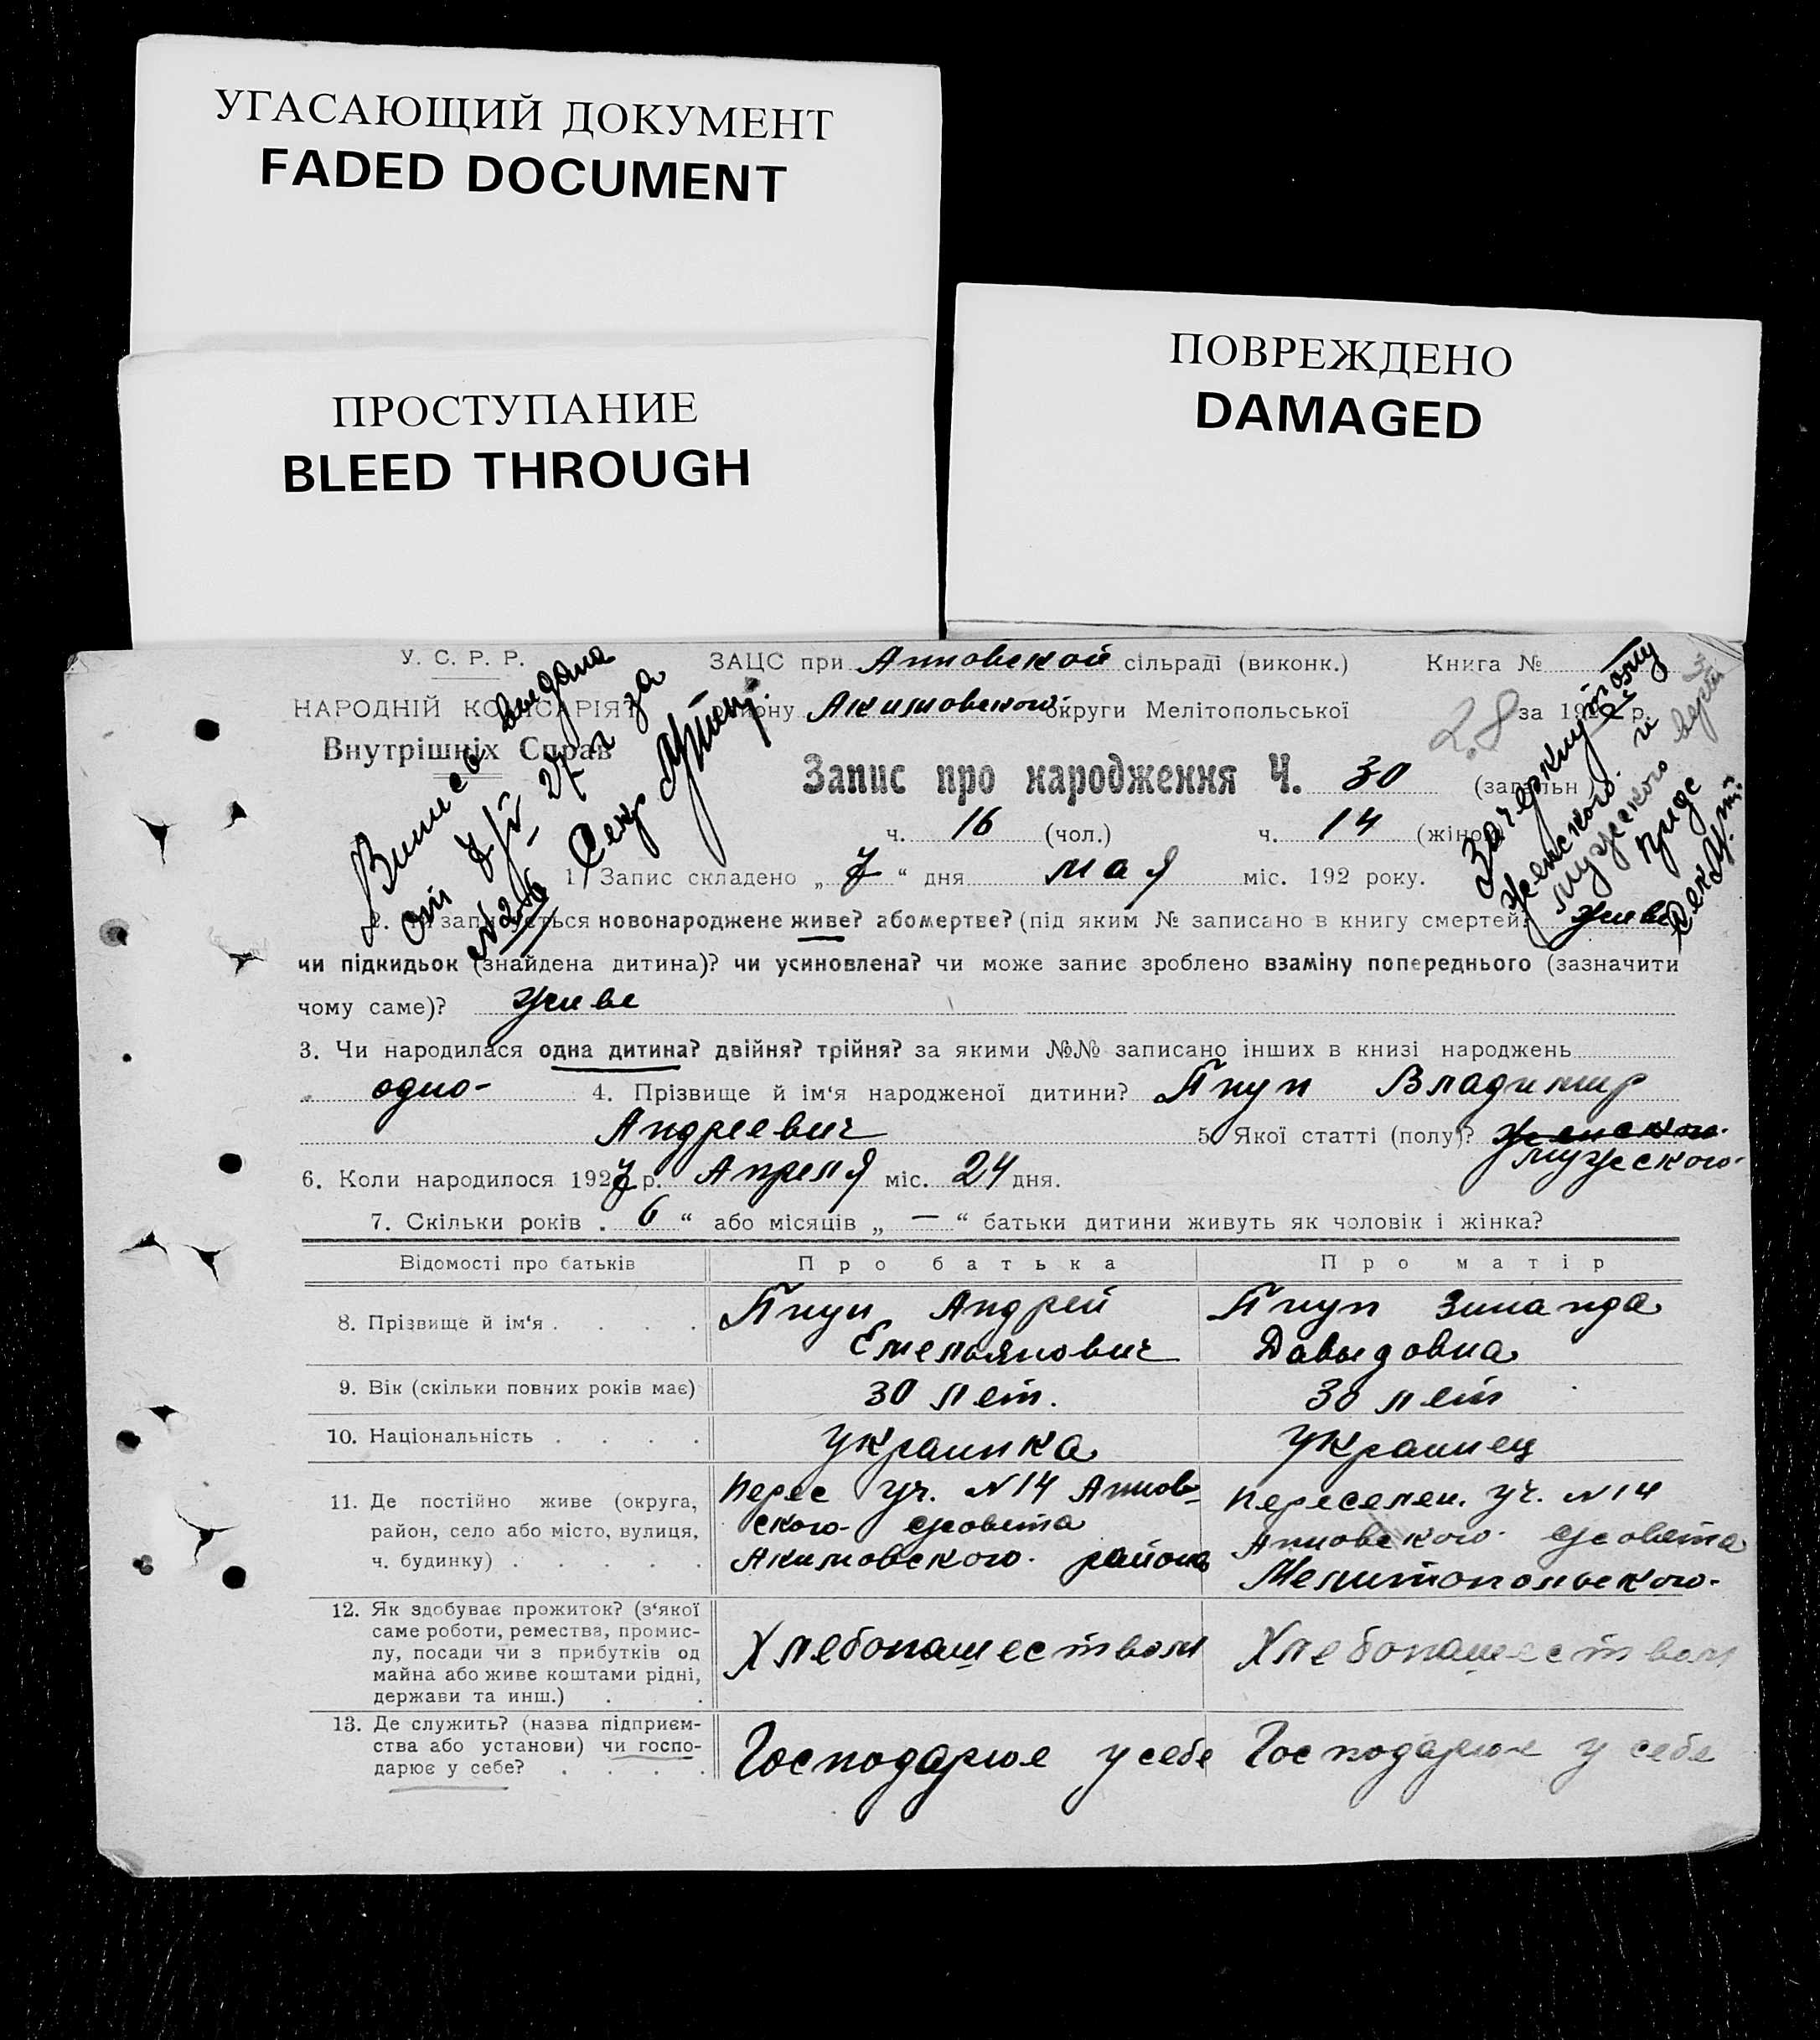 УГАСАЮЩИЙ ДОКУМЕНТ
FADED DOCUMENT
ПРОСТУПАНИЕ
BLEED THROUGH
ПОВРЕЖДЕНО
DAMAGED
У. С. Р. Р.
ЗАЦС при Анновской сільраді (виконк.) Книга №
НАРОДНІЙ
Акимовского округи Мелітопольської
28 за 192 р.
Внутрішніх Справ
Запис про народження Ч. 30
ч. 16 (чол.) ч. 14
Выпись выдана
от 7/V 27 г за
№ 26 Секр
Зачеркнутому
женского и
мужеского верить
Секр
1 Запис складено „ 7 “ дня мая міс. 192 року.
2. новонароджене живе? або мертве? (під яким № записано в книгу смертей живе
чи підкидьок (знайдена дитина)? чи усиновлена? чи може запис зроблено взаміну попереднього (зазначити
чому саме)? живе
3. Чи народилася одна дитина? двійня? трійня? за якими №№ записано інших в книзі народжень
одно- 4. Прізвище й ім‘я народженої дитини? Владимир
Андреевич 5. Якої статті (полу)? женского.
мужеского.
6. Коли народилося 1927 р. Апреля міс. 24 дня.
7. Скільки років „ 6 “ або місяців „ — “ батьки дитини живуть як чоловік і жінка?
Відомості про батьків Про батька Про матір
8. Прізвище й ім‘я . . . . Андрей Зинаида
Емельянович Давыдовна
9. Вік (скільки повних років має) 30 лет. 30 лет
10. Національність . . . . украинка украинец
11. Де постійно живе (округа, район, село або місто, вулиця, ч. будинку) . . . . .
Перес уч. №14 Аннов-
ского с/совета
Акимовского района
Переселен. уч. №14
Анновского с/совета
Мелитопольского.
12. Як здобуває прожиток? (з‘якої
саме роботи, ремества, промис-
лу, посади чи з прибутків од
майна або живе коштами рідні,
держави та инш.) . .
Хлебопашеством Хлебопашеством
13. Де служить? (назва підприєм-
ства або установи) чи госпо-
дарює у себе? . . . .
Господарює у себе Господарює у себе